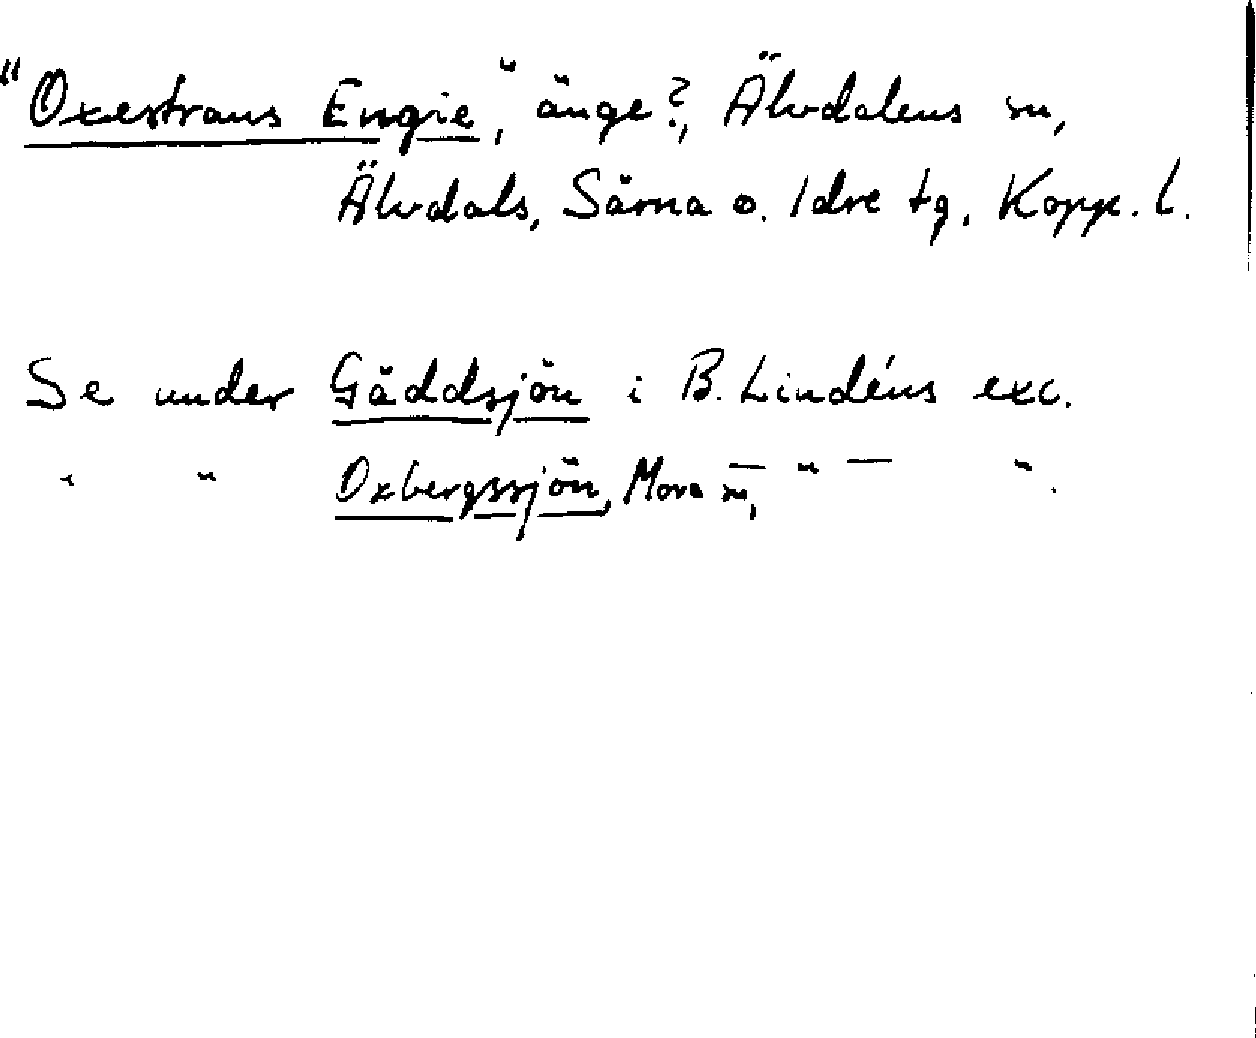 "Oxestrans Engie", änge?, Älvdalens sn,
Älvdals, Särna o. Idre tg, Kopp. l.
Se under Gäddsjön i B. Lindéns exc.
" " Oxbergssjön, Mora sn, — " — ".